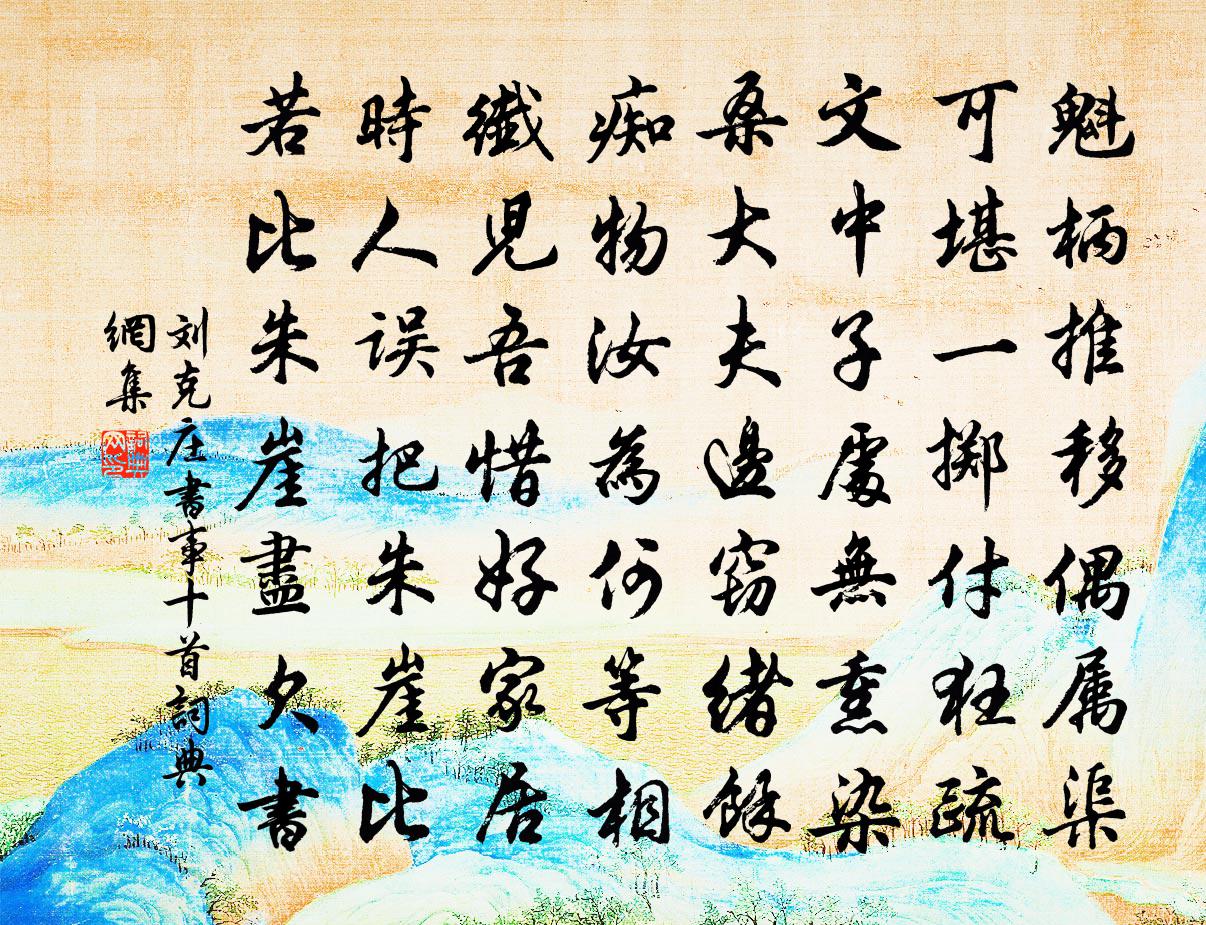 魁柄推移偶属渠
可堪一掷付狂疏
文中子處無熏染
桑大夫邊窃緒餘
痴物汝為何等相
纖兒吾惜好家居
時人误把朱崖比
若比朱崖盡欠書
刘克庄書事十首詞典
網集